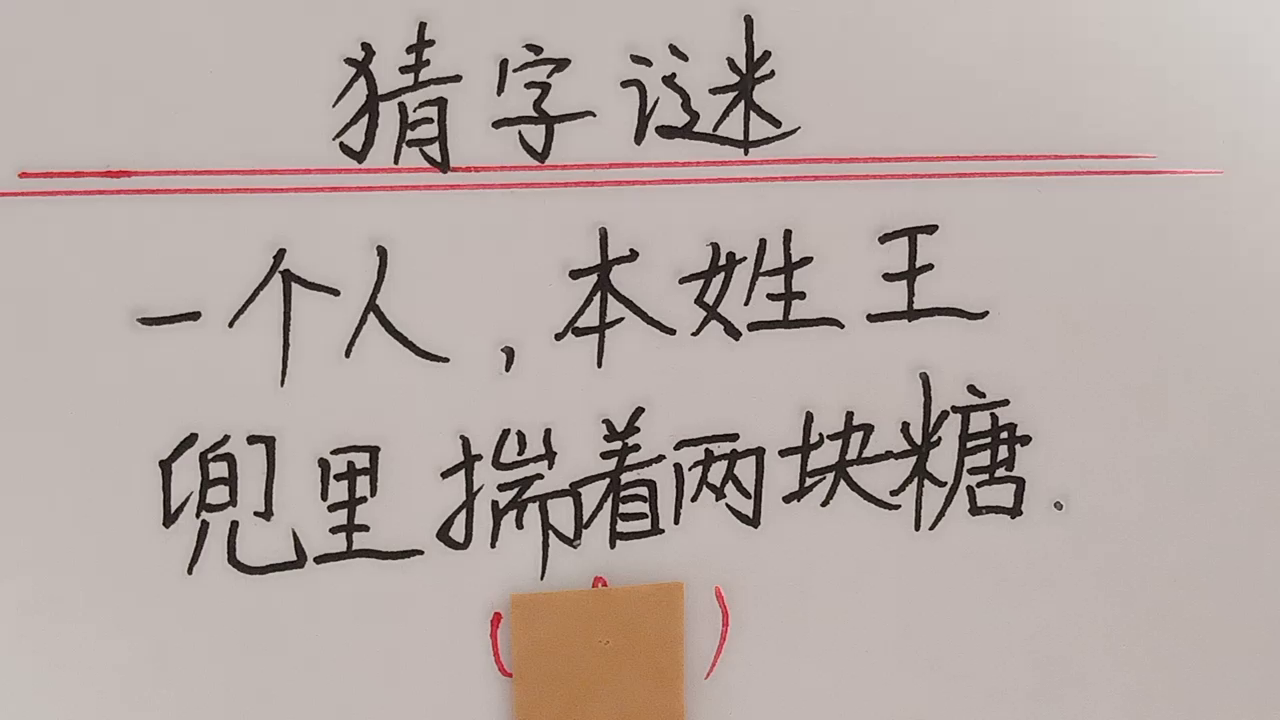 猜字谜
一个人，本姓王
兜里揣着两块糖.
（ ）